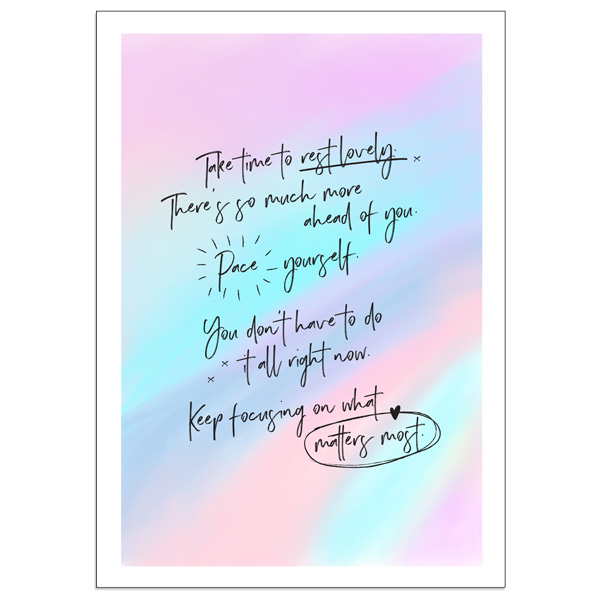 Take time to rest lovely.
There's so much more
ahead of you.
Pace yourself.
You don't have to do
it all right now.
Keep focusing on what
matters most.